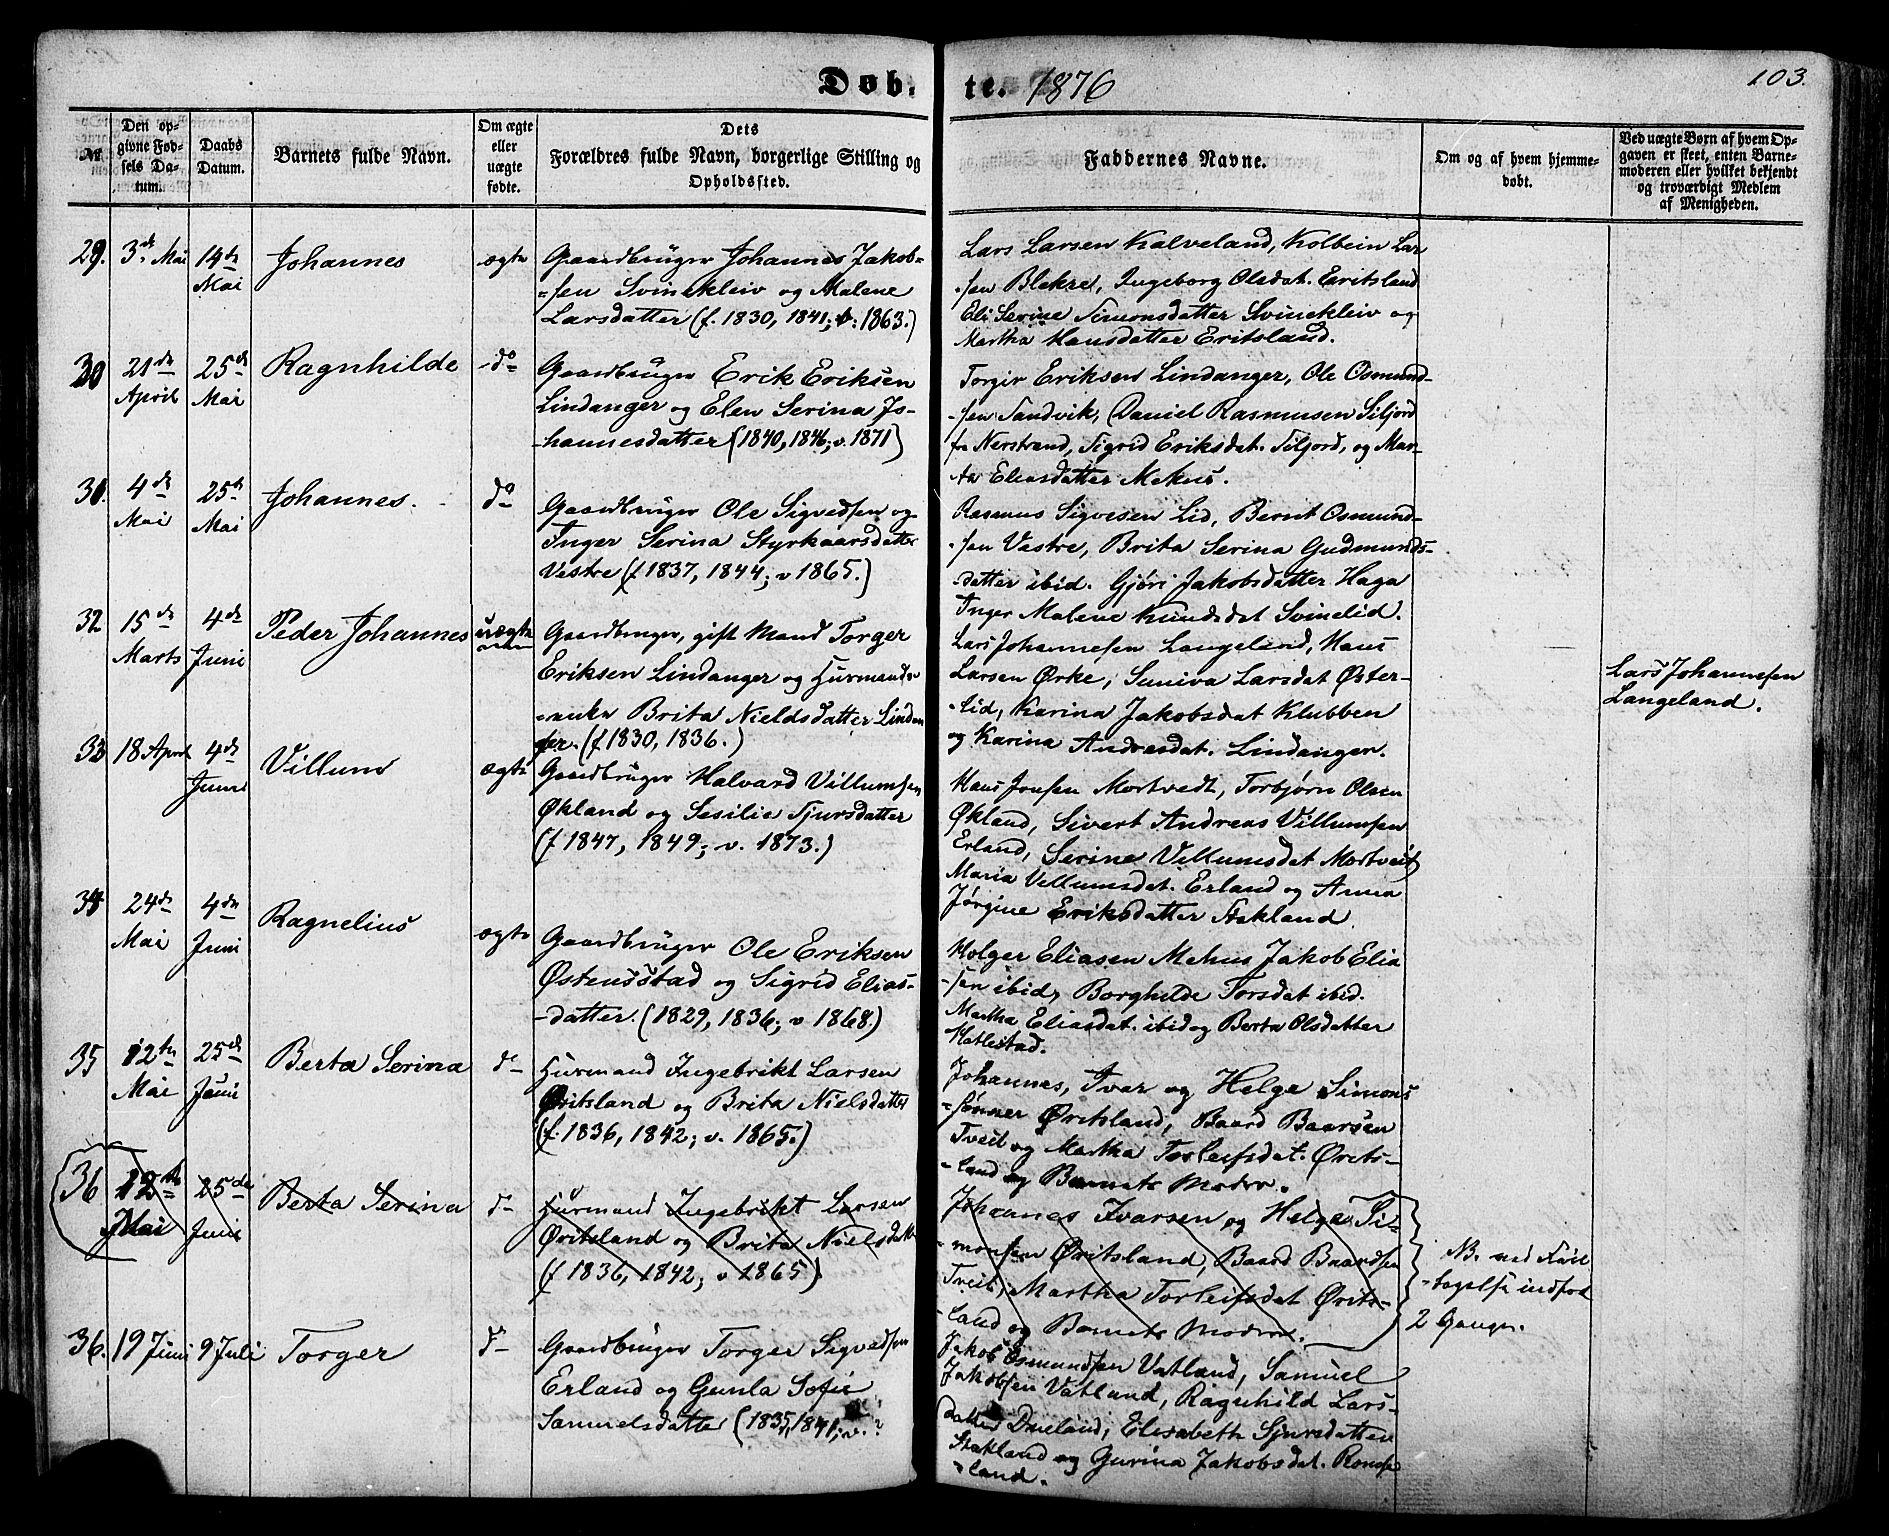 Døb- te. 1876
103.
№
Den opgivne Fødsels Datum.
Daabs Datum.
Barnets fulde Navn.
Om ægte eller uægte fødte.
Dets Forældres fulde Navn, borgerlige Stilling og Opholdssted.
Faddernes Navne.
Om og af hvem hjemmedøbt.
Ved uægte Børn af hvem Opgaven er skeet, enten Barnemoderen eller hvilket bekjendt og troværdigt Medlem af Menigheden.
29. 3de Mai 14de Mai Johannes ægte
Gaardbruger Johannes Jakob-
-sen Svinekleiv og Malene
Larsdatter (f. 1830, 1841; v: 1863.)
Lars Larsen Kalveland, Kolbein Lar
-sen Blekre, Ingeborg Olsdat. Eritsland
Eli Serine Simonsdatter Svinekleiv og
Martha Hansdatter Eritsland.
30 21de April 25de Mai Ragnhilde do
Gaardbruger Erik Eriksen
Lindanger og Elen Serina Jo-
-hannesdatter (1840, 1846; v. 1871)
Torgir Eriksen Lindanger, Ole Osmund-
-sen Sandvik, Daniel Rasmusen Siljord
fr Nerstrand, Sigrid Eriksdat. Siljord, og Mar-
ta Eliasdatter Mehus.
31. 4de Mai 25de Mai Johannes. do
Gaardbruger Ole Sigvedsen og
Inger Serina Styrkaarsdatter
Vestre (f 1837, 1844; v 1865.)
Rasmus Sigvesen Lid, Bernt Osmund-
-sen Vestre, Brita Serina Gudmunds-
-datter ibid. Gjøri Jakobsdatter Haga
Inger Malene Knudsdat Svinelid.
32 15de Marts 4de Juni Peder Johannes uægte
Gaardbruger, gift Mand Torger
Eriksen Lindanger og Husmands-
-enke Brita Nieldsdatter Lindan
ger. (f 1830, 1836.)
Lars Johannesen Langeland, Hans
Larsen Ørke, Suniva Larsdat Øster-
-lid, Karina Jakobsdat Klubben
og Karina Andreasdat. Lindanger.
Lars Johannesen
Langeland.
33 18 April 4de Juni Villum ægte
Gaardbruger Halvard Villumsen
Økland og Sesilie Sjursdatter
(f 1847, 1849; v. 1873.)
Hans Jonsen Mortvedt, Torbjørn Olsen
Økland, Sivert Andreas Villumsen
Erland, Serine Villumsdat Mortveit
Maria Villumsdat. Erland og Anna
Jørgine Eriksdatter Stakland.
34 24de Mai 4de Juni Ragnelius ægte
Gaardbruger Ole Eriksen
Østensstad og Sigrid Elias-
-datter. (1829, 1836; v 1868.)
Holger Eliasen Mehus Jakob Elia
-sen ibid, Borghilde Torsdat ibid.
Martha Eliasdat. ibid og Berta Olsdatter
Hatlestad.
35 12te Mai 25de Juni Berta Serina do
Husmand Ingebrikt Larsen
Øritsland og Brita Nielsdatter
(f. 1836, 1842; v. 1865.)
Johannes, Ivar og Helge Simons
-sønner Øritsland, Baard Baarsen
Tveit og Martha Torleifsdat. Ørits-
-land og Barnets Moder.
36 12te Mai 25de Juni Berta Serina do
Husmand Ingebrikt Larsen
Øritsland og Brita Nielsdatter
(f 1836, 1842; v 1865)
Johannes Ivarsen og Helge Si-
-monsen Øritsland, Baard Baardsen
Tveit, Martha Torleifsdat Ørits-
-land og Barnets Moder.
NB. ved Feil
-tagelse indført
2 Gange.
36. 19 Juni 9 Juli Torger do
Gaardbruger Torger Sigvedsen
Erland og Gunla Sofie
Samuelsdatter (1835, 1841; v. ?
Jakob Osmundsen Vatland, Samuel
Jakobsen Vatland, Ragnhild Lars-
datter Dueland, Elisabeth Sjursdatter
Stakland og Gurina Jakobsdat. Romse
-land.